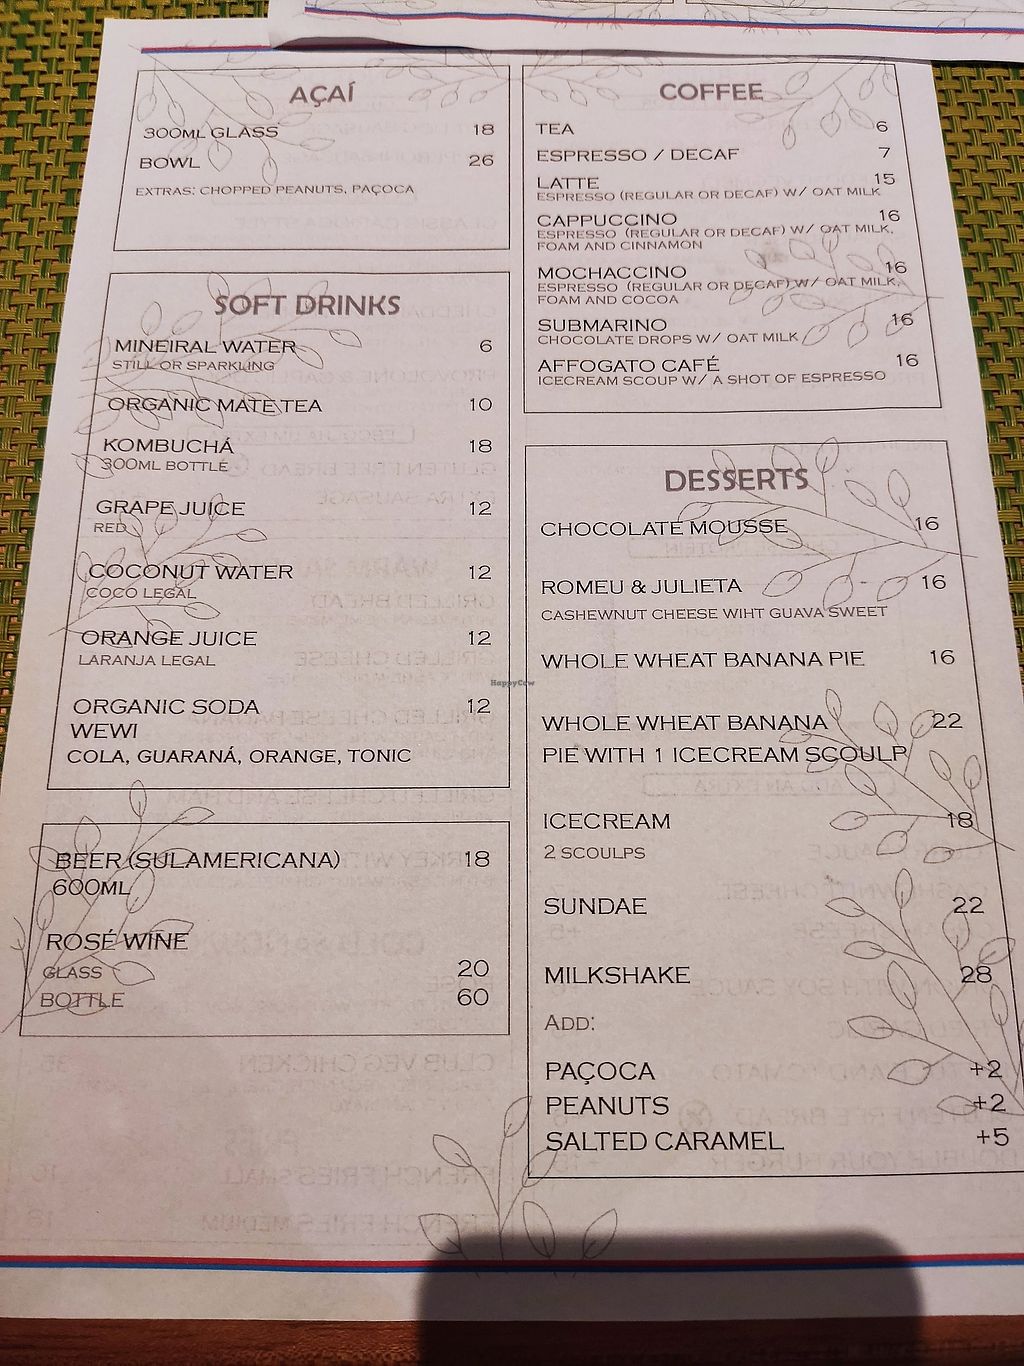 AÇAÍ
300ML GLASS 18
BOWL 26
EXTRAS: CHOPPED PEANUTS, PAÇOCA
SOFT DRINKS
MINEIRAL WATER 6
STILL OR SPARKLING
ORGANIC MATE TEA 10
KOMBUCHÁ 18
300ML BOTTLE
GRAPE JUICE 12
RED
COCONUT WATER 12
COCO LEGAL
ORANGE JUICE 12
LARANJA LEGAL
ORGANIC SODA 12
WEWI
COLA, GUARANÁ, ORANGE, TONIC
BEER (SULAMERICANA) 18
600ML
ROSÉ WINE
GLASS 20
BOTTLE 60
COFFEE
TEA 6
ESPRESSO / DECAF 7
LATTE 15
ESPRESSO (REGULAR OR DECAF) W/ OAT MILK
CAPPUCCINO 16
ESPRESSO (REGULAR OR DECAF) W/ OAT MILK,
FOAM AND CINNAMON
MOCHACCINO 16
ESPRESSO (REGULAR OR DECAF) W/ OAT MILK,
FOAM AND COCOA
SUBMARINO 16
CHOCOLATE DROPS W/ OAT MILK
AFFOGATO CAFÉ 16
ICECREAM SCOUP W/ A SHOT OF ESPRESSO
DESSERTS
CHOCOLATE MOUSSE 16
ROMEU & JULIETA 16
CASHEWNUT CHEESE WIHT GUAVA SWEET
WHOLE WHEAT BANANA PIE 16
WHOLE WHEAT BANANA 22
PIE WITH 1 ICECREAM SCOULP
ICECREAM 18
2 SCOULPS
SUNDAE 22
MILKSHAKE 28
ADD:
PAÇOCA +2
PEANUTS +2
SALTED CARAMEL +5
HappyCow